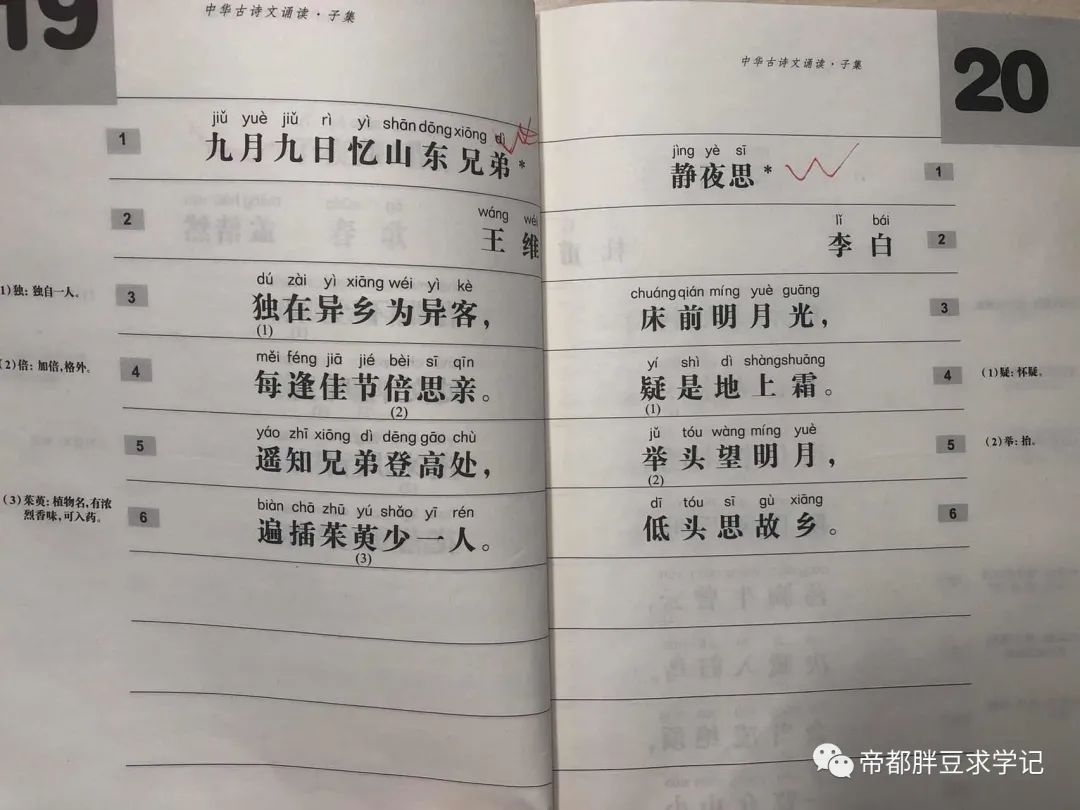 19
中华古诗文诵读·子集
jiǔ yuè jiǔ rì yì shān dōng xiōng dì
1 九月九日忆山东兄弟*
wáng wéi
2 王维
dú zài yì xiāng wéi yì kè
(1)独:独自一人。
3 独在异乡为异客,
(1)
měi féng jiā jié bèi sī qīn
(2)倍:加倍,格外。
4 每逢佳节倍思亲。
(2)
yáo zhī xiōng dì dēng gāo chù
5 遥知兄弟登高处,
biàn chā zhū yú shǎo yī rén
(3)茱萸:植物名,有浓
烈香味,可入药。
6 遍插茱萸少一人。
(3)
中华古诗文诵读·子集
20
jìng yè sī
静夜思* 1
lǐ bái
李白 2
chuáng qián míng yuè guāng
床前明月光, 3
yí shì dì shàng shuāng
疑是地上霜。 4
(1)
(1)疑:怀疑。
jǔ tóu wàng míng yuè
举头望明月, 5
(2)
(2)举:抬。
dī tóu sī gù xiāng
低头思故乡。 6
帝都胖豆求学记